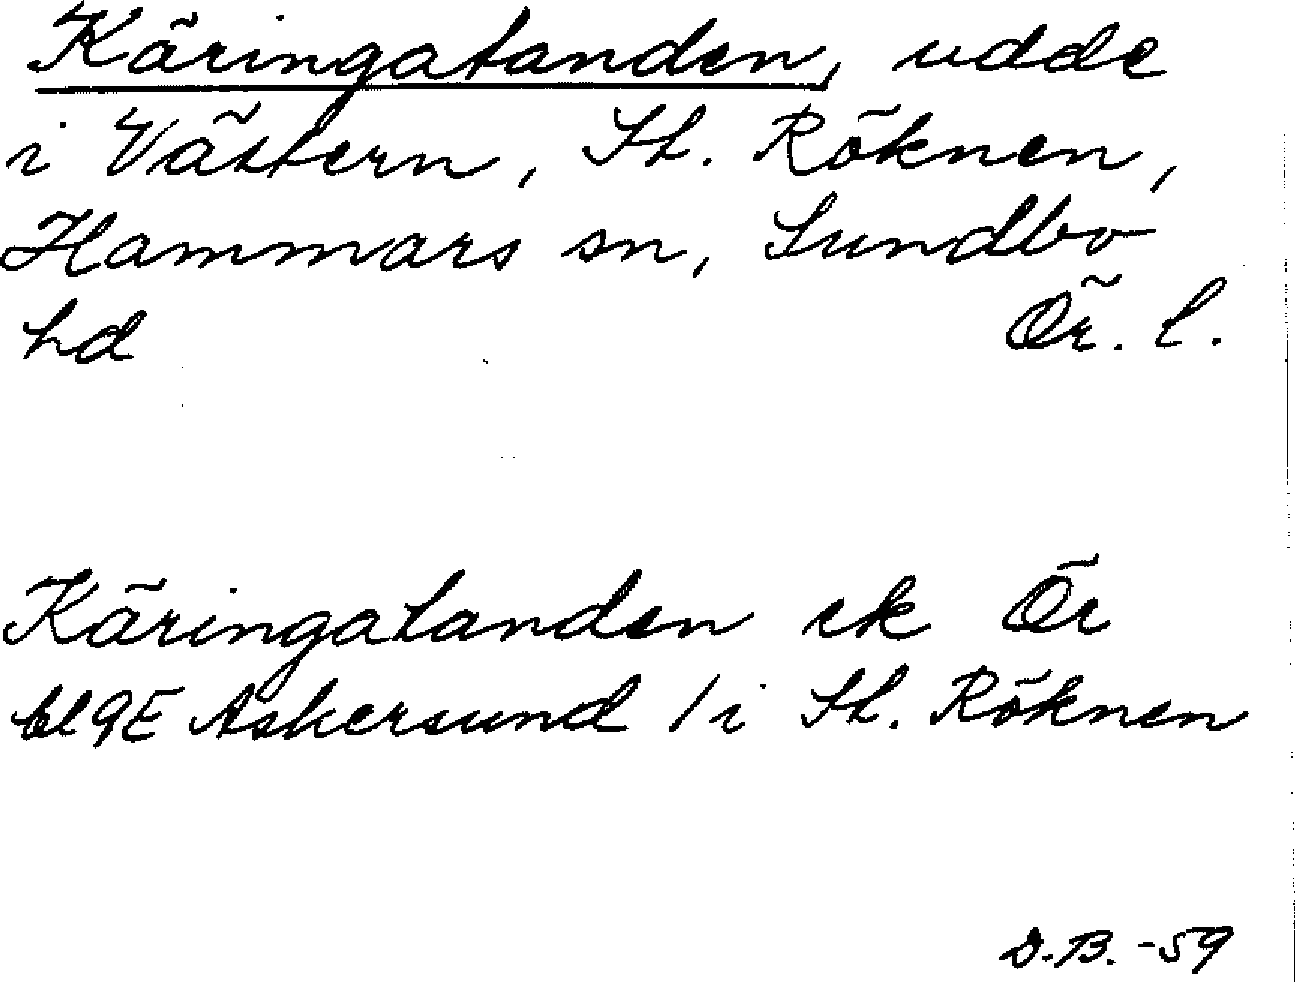 Käringatanden, udde
i Vättern, St. Röknen,
Hammars sn, Sundbo
hd Ör. l.
Käringatanden ek Ör
bl 9E Askersund / i St. Röknen
D.B. -59